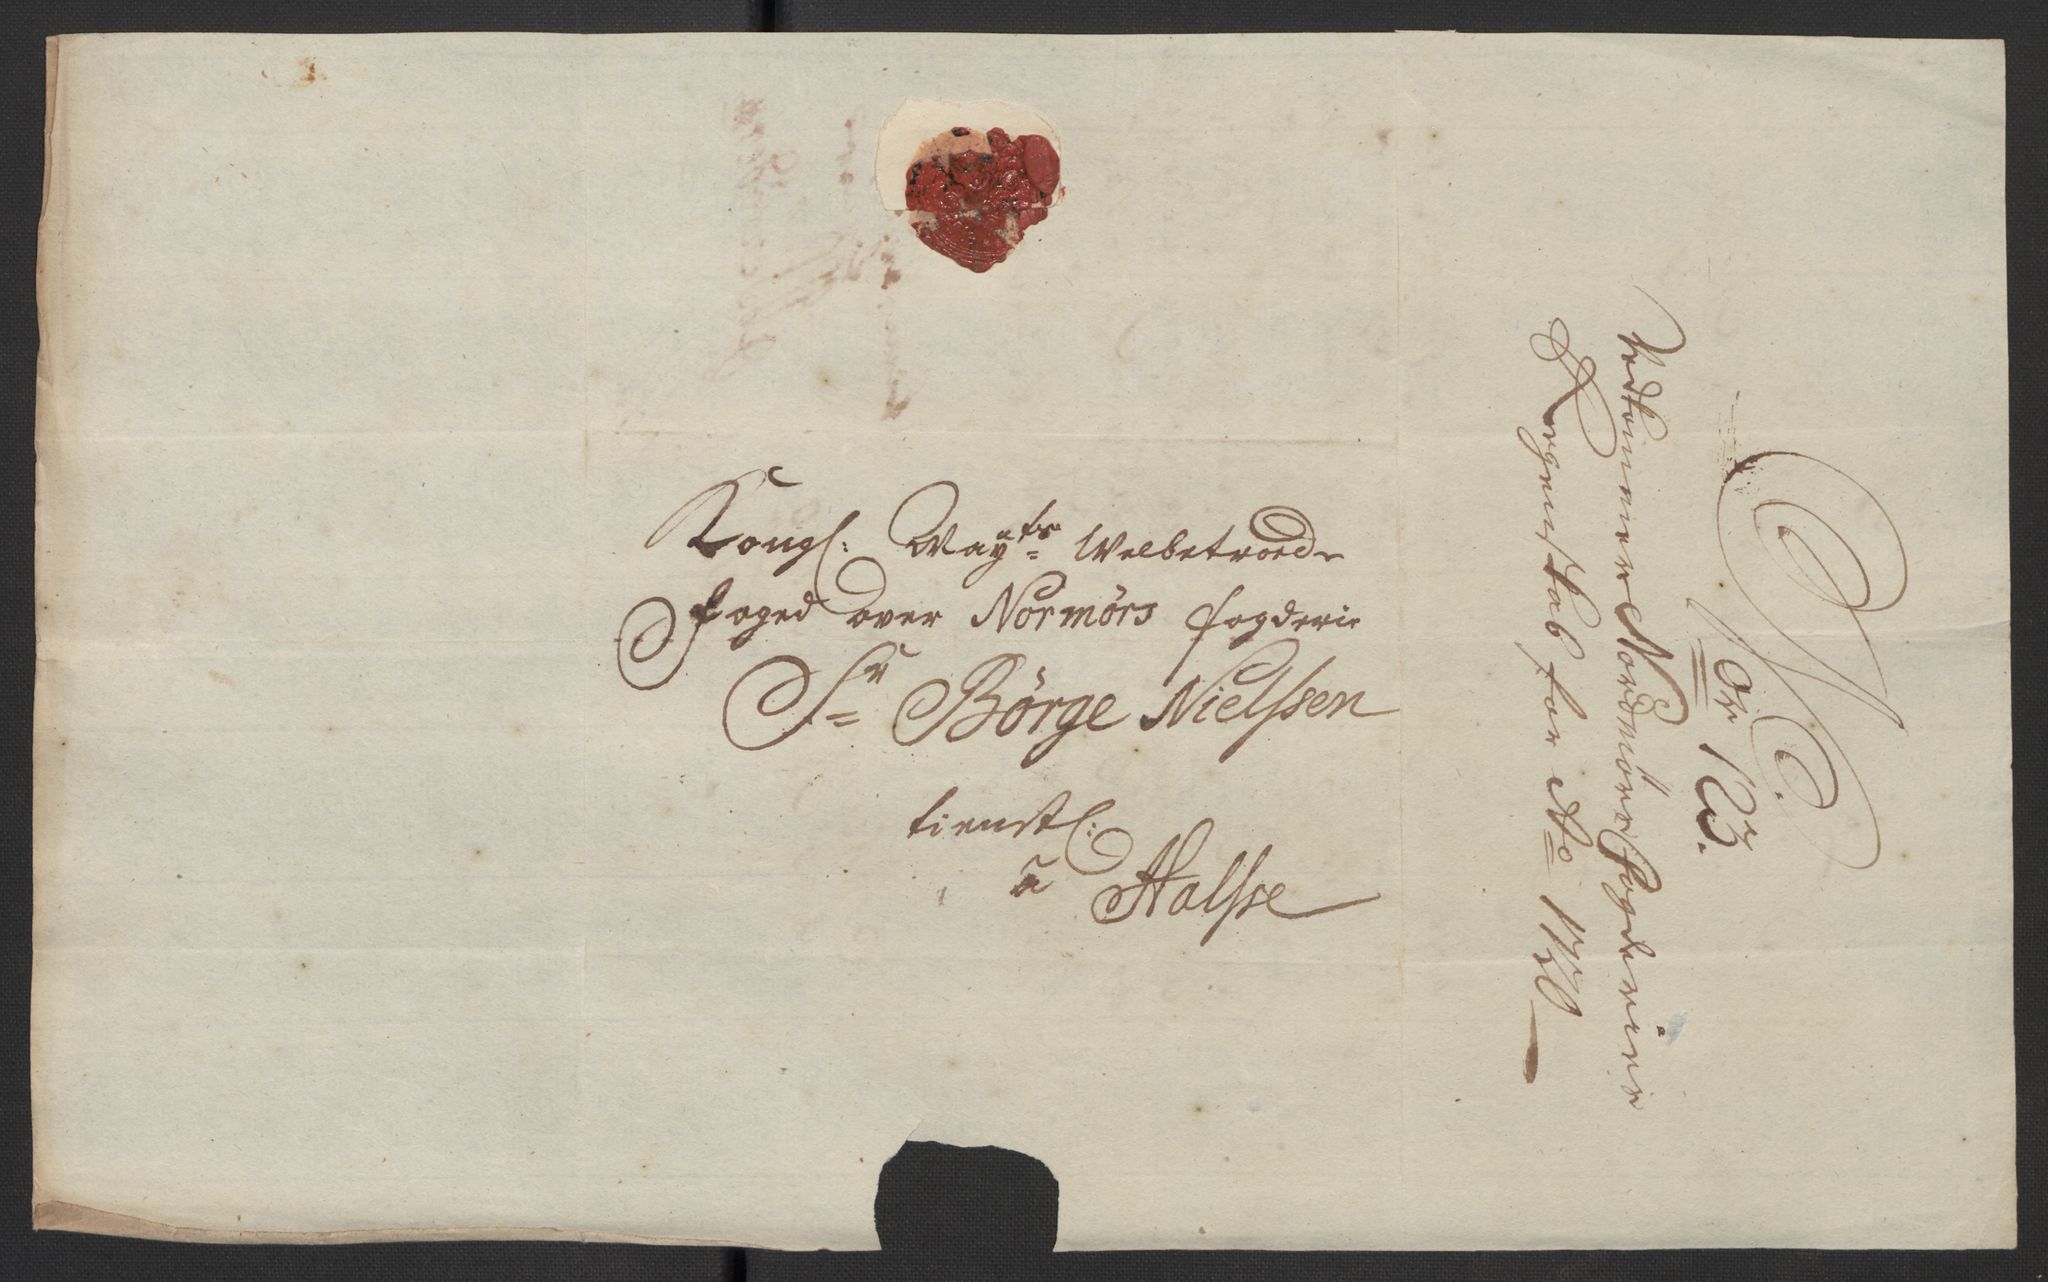 Kongl: Mayts Welbetroede
foged over Normørs fogderie
Sr Børge Nielssen
tienstl:
a Halsse
No 13.
Vedkommer Nordmörs Fogderies
Regenskab for Ao 1720